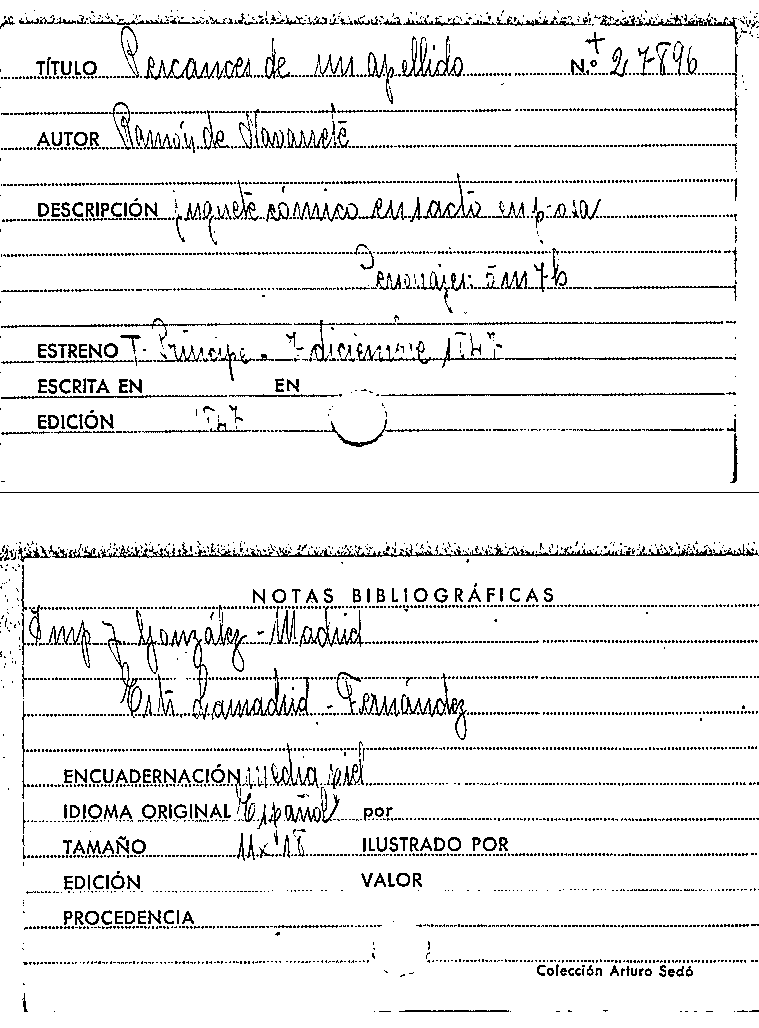 TÍTULO Percances de un apellido N.º + 27896
AUTOR Ramón de Navarrete
DESCRIPCIÓN juguete cómico en 1 acto en prosa
Personajes: 5 m 7 h
ESTRENO T. Príncipe. 7 diciembre 1847
ESCRITA EN EN
EDICIÓN 1847
NOTAS BIBLIOGRÁFICAS
Imp J González - Madrid
Estr Lamadrid - Fernández
ENCUADERNACIÓN media piel
IDIOMA ORIGINAL Español por
TAMAÑO 11 x 18 ILUSTRADO POR
EDICIÓN VALOR
PROCEDENCIA
Colección Arturo Sedó